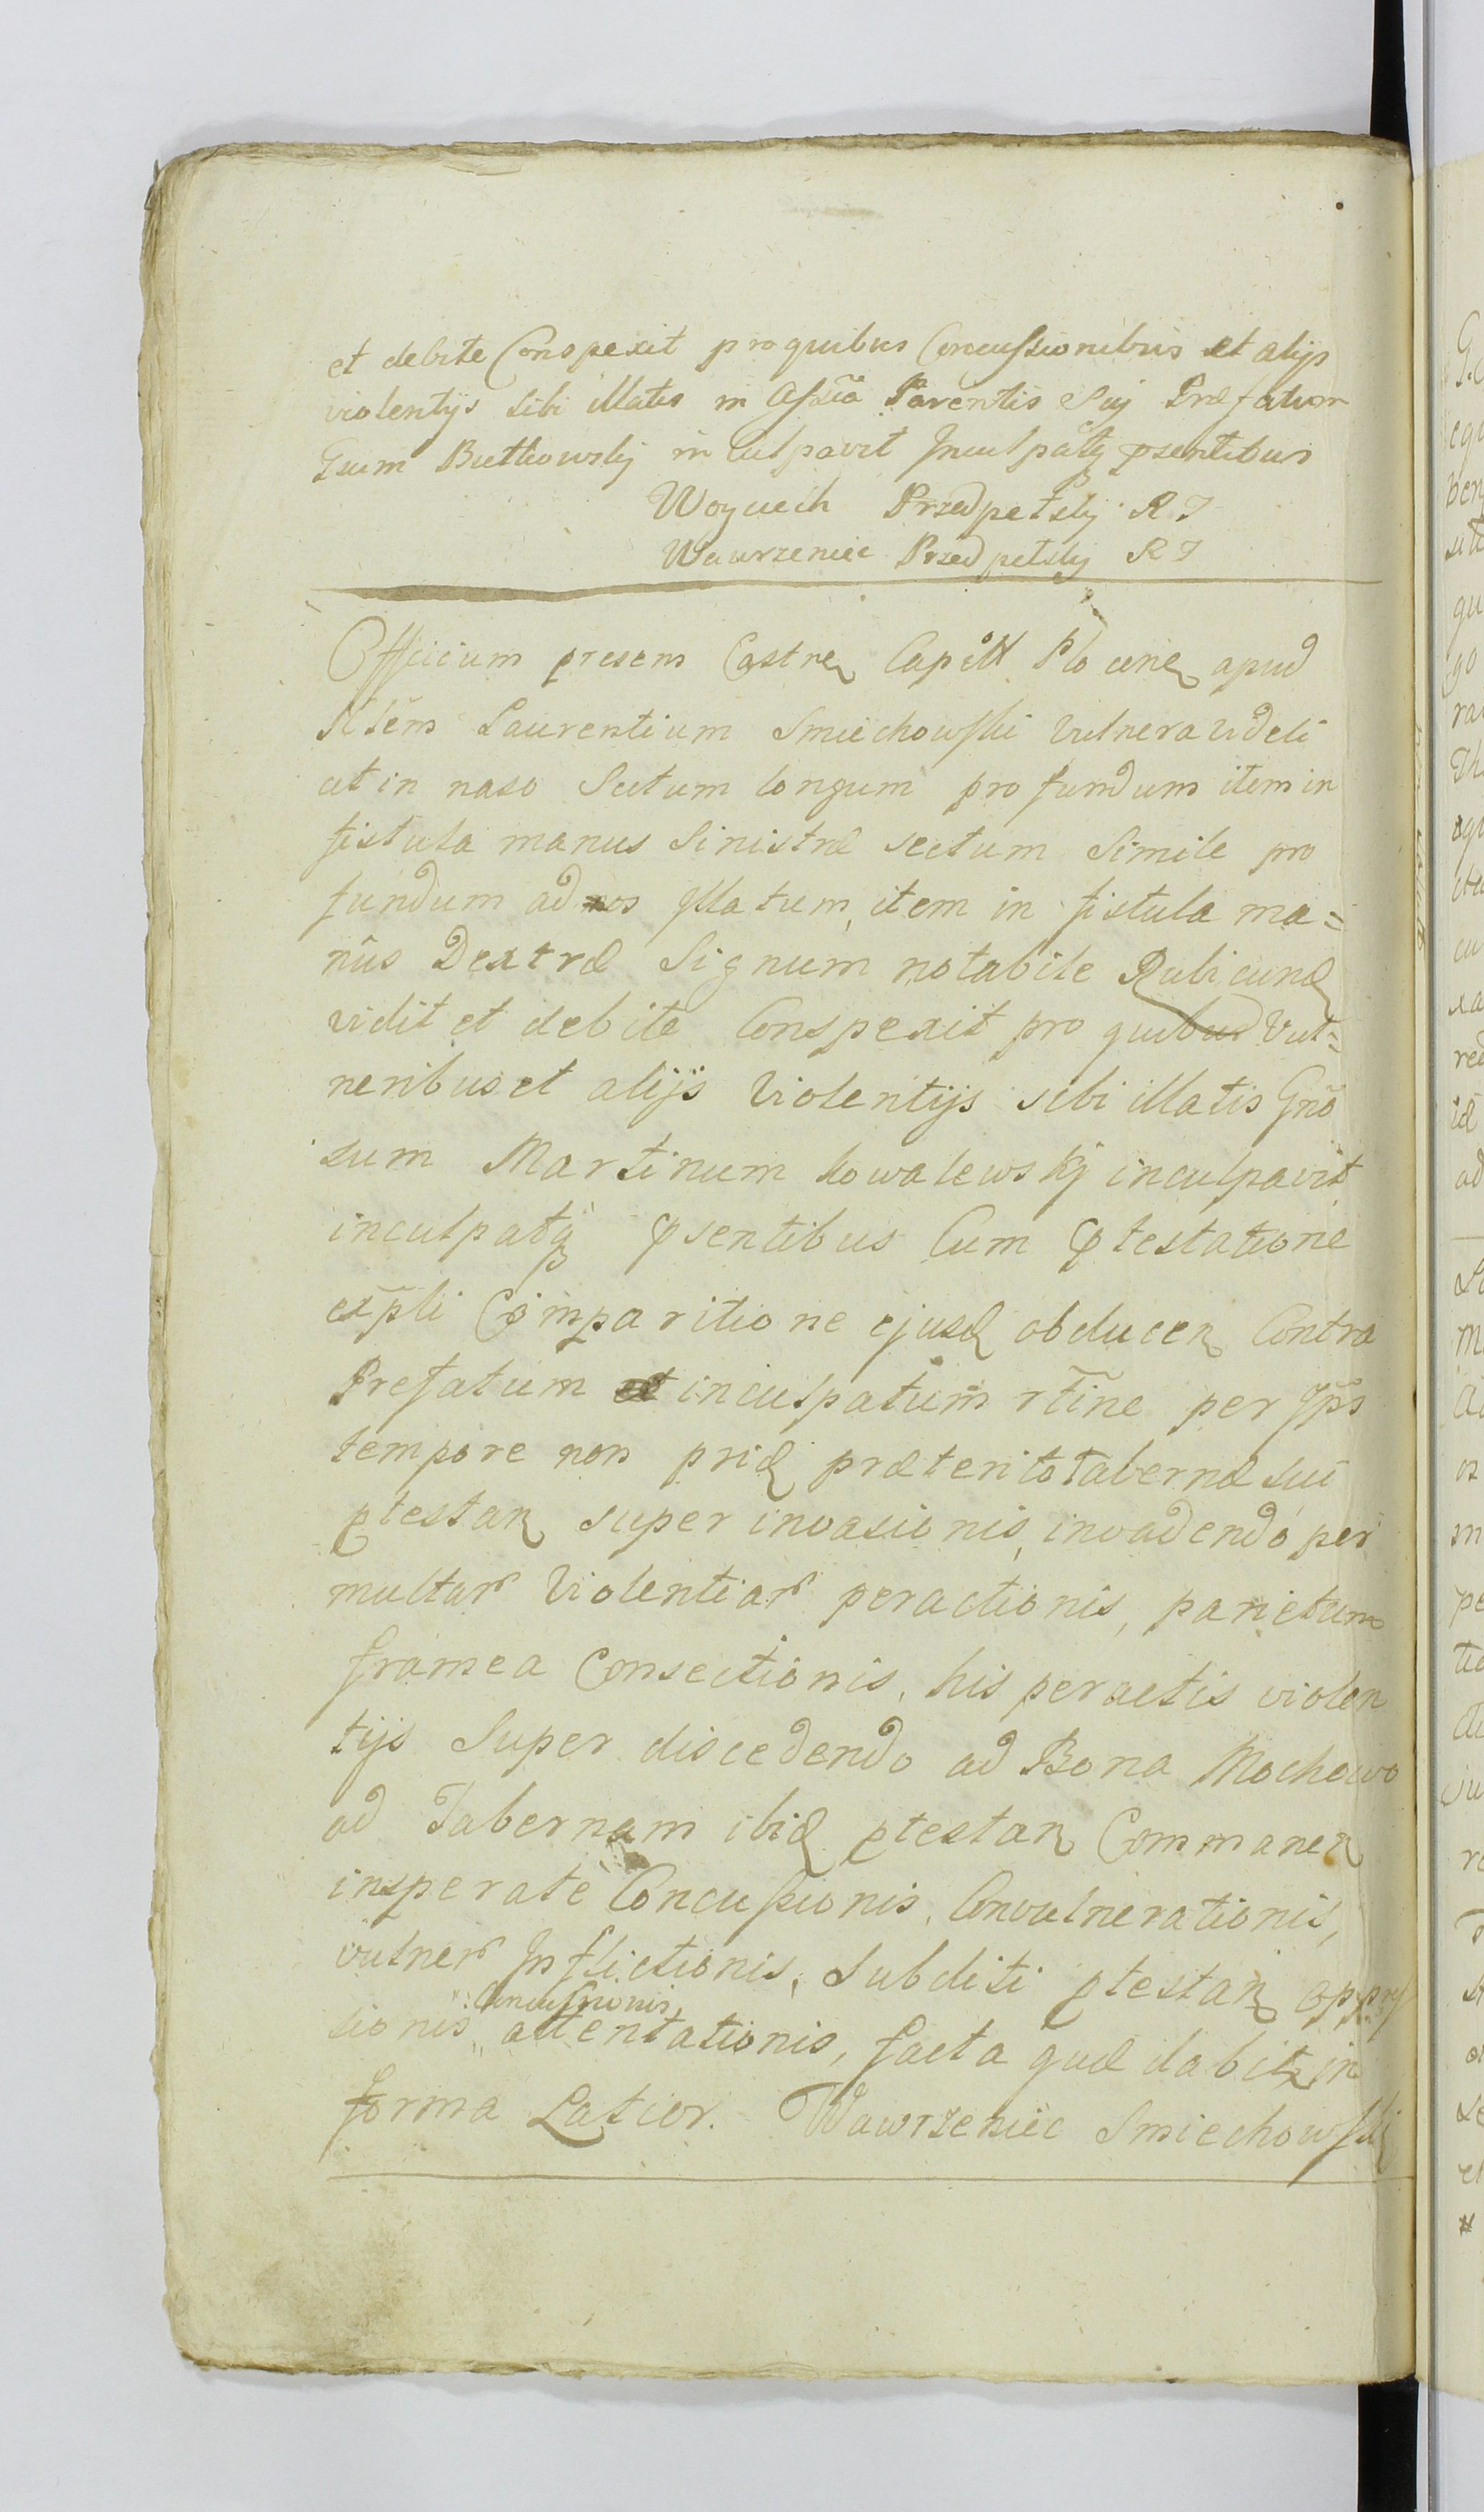 et debite Conspexit pro quibus Concussionibus et alijs
violentijs sibi illatis in Assña Parentis Suj Præfatum
Gsum Butkowskij inculpavit Inculpatq psentibus
Woyciech Przedpetskj R J
Wawrzeniec Przedpetskj R J
Officium presens Castren Capitl Plocen apud
Laurentium Smiechowski Vulnera videli
cet in naso Sectum longum profundum item in
fistula manus Sinistræ sectum Simile pro
fundum ad os Illatum, item in fistula ma=
nûs Dextræ Signum notabile Rubicund
vidit et debite Conspexit pro quibus Vul=
neribus et alijs Violentijs sibi illatis Gño
sum Martinum Kowalewskj inculpavit
inculpatq psentibus Cum Ptestatione
expli Comparitione ejusd obducen Contra
Prefatum inculpatum rtine per Ips
tempore non prid præterito Tabernæ sui
ptestan super invasionis, invadendo per
multar Violentiar peractionis, parietum
framea Consectionis, his peractis violen
tijs Super discedendo ad Bona Mochowo
ad Tabernam ibid ptestan Commanen
insperatè Concussionis, Convulnerationis,
vulner Inflictionis, Subditi ptestan oppres
Concussionis,
sionis attentationis, facta quæ dabitr in
forma Latior. Wawrzeniec Smiechowski